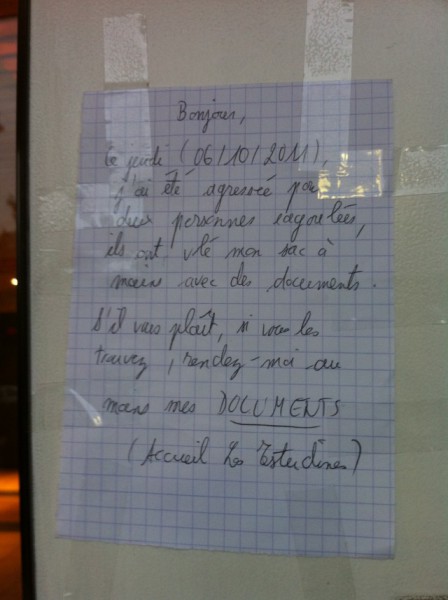 Bonjour,
Le jeudi (06/10/2011),
j'ai été agressé par
deux personnes cagoulées,
ils ont volé mon sac à
mains avec des documents.
S'il vous plaît, si vous les
trouvez, rendez-moi au
moins mes DOCUMENTS
(Accueil Les Estudines)